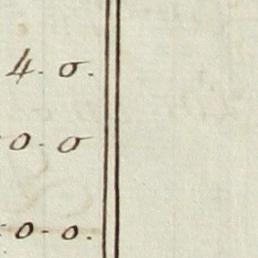 4. 0.
0. 0
0-0.